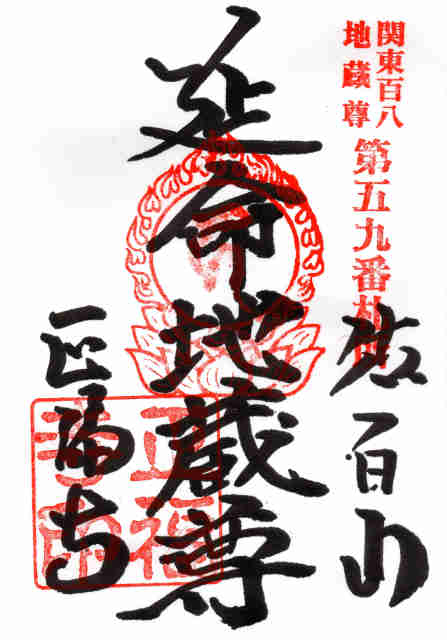 関東百八
地蔵尊
第五九番札所
佐百山
延命地蔵尊
正福寺
正福
寺印